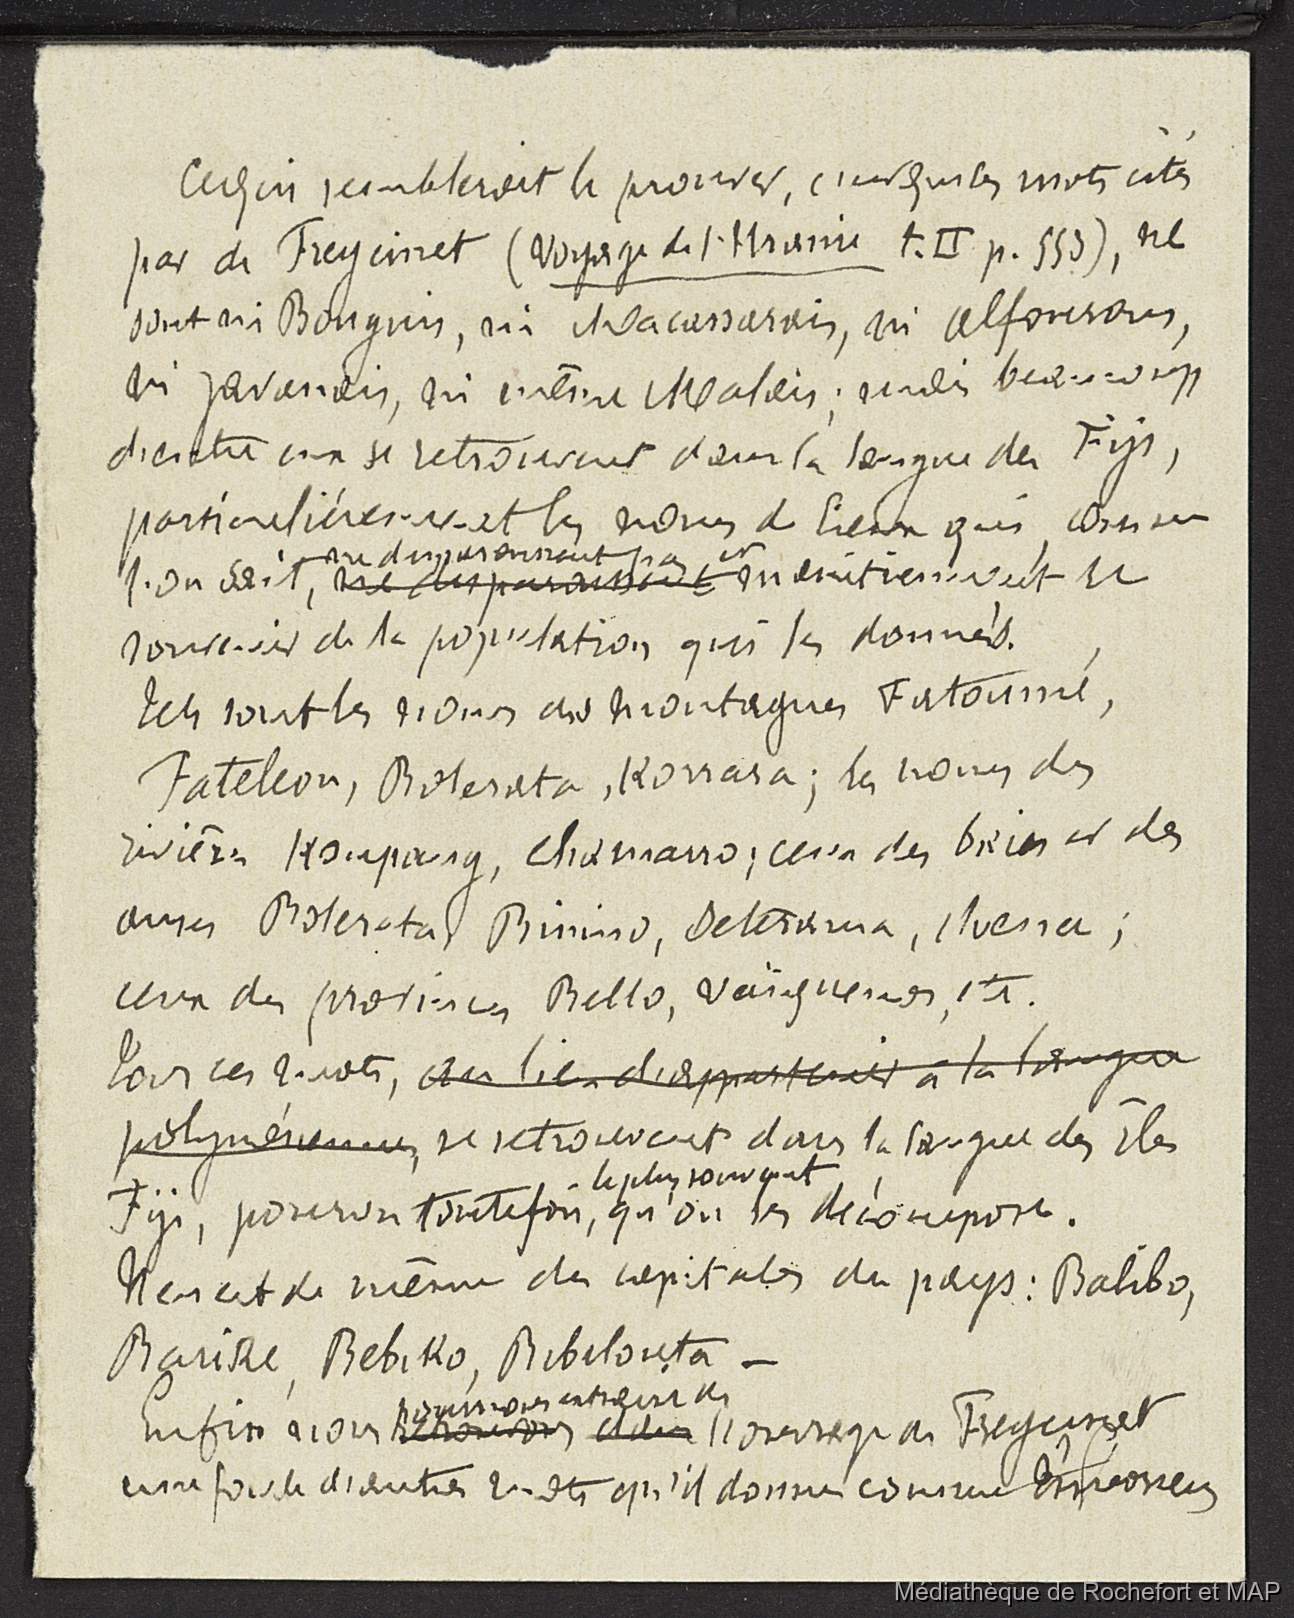 Ce qui semblerait le prouver, c'est que les mots cités
par de Freycinet (Voyage de l'Uranie t. II p. 553), ne
sont ni Bouguis, ni Macassarais, ni alfourous,
ni javanais, ni même Malais; mais beaucoup
d'entre eux se retrouvent dans la langue des Fiji,
particulièrement les noms de lieux qui, comme
ne disparaissent pas et
l'on sait, ne disparaissent maintiennent le
souvenir de la population qui les donnés.
Tels sont les noms des montagnes Fatoumé,
Fateleou, Bolerata, Korrara; les noms des
rivières Koupang, Chamarro; ceux des baies et des
anses Bolerata, Binino, Deterama,
ceux des provinces Bello, Vaïguenos, etc.
Tous ces mots, au lieu d'appartenir à la langue
polynésienne, se retrouvent dans la langue des îles
le plus souvent
Fiji, pourvu toutefois, qu'on les décompose.
Il en est de même des capitales du pays: Balibo,
Barike, Bebiko, Bibilouta –
pouvons extraire de
Enfin nous retrouvons dans l'ouvrage de Freycinet
une foule d'autres mots qu'il donne comme Timoriens